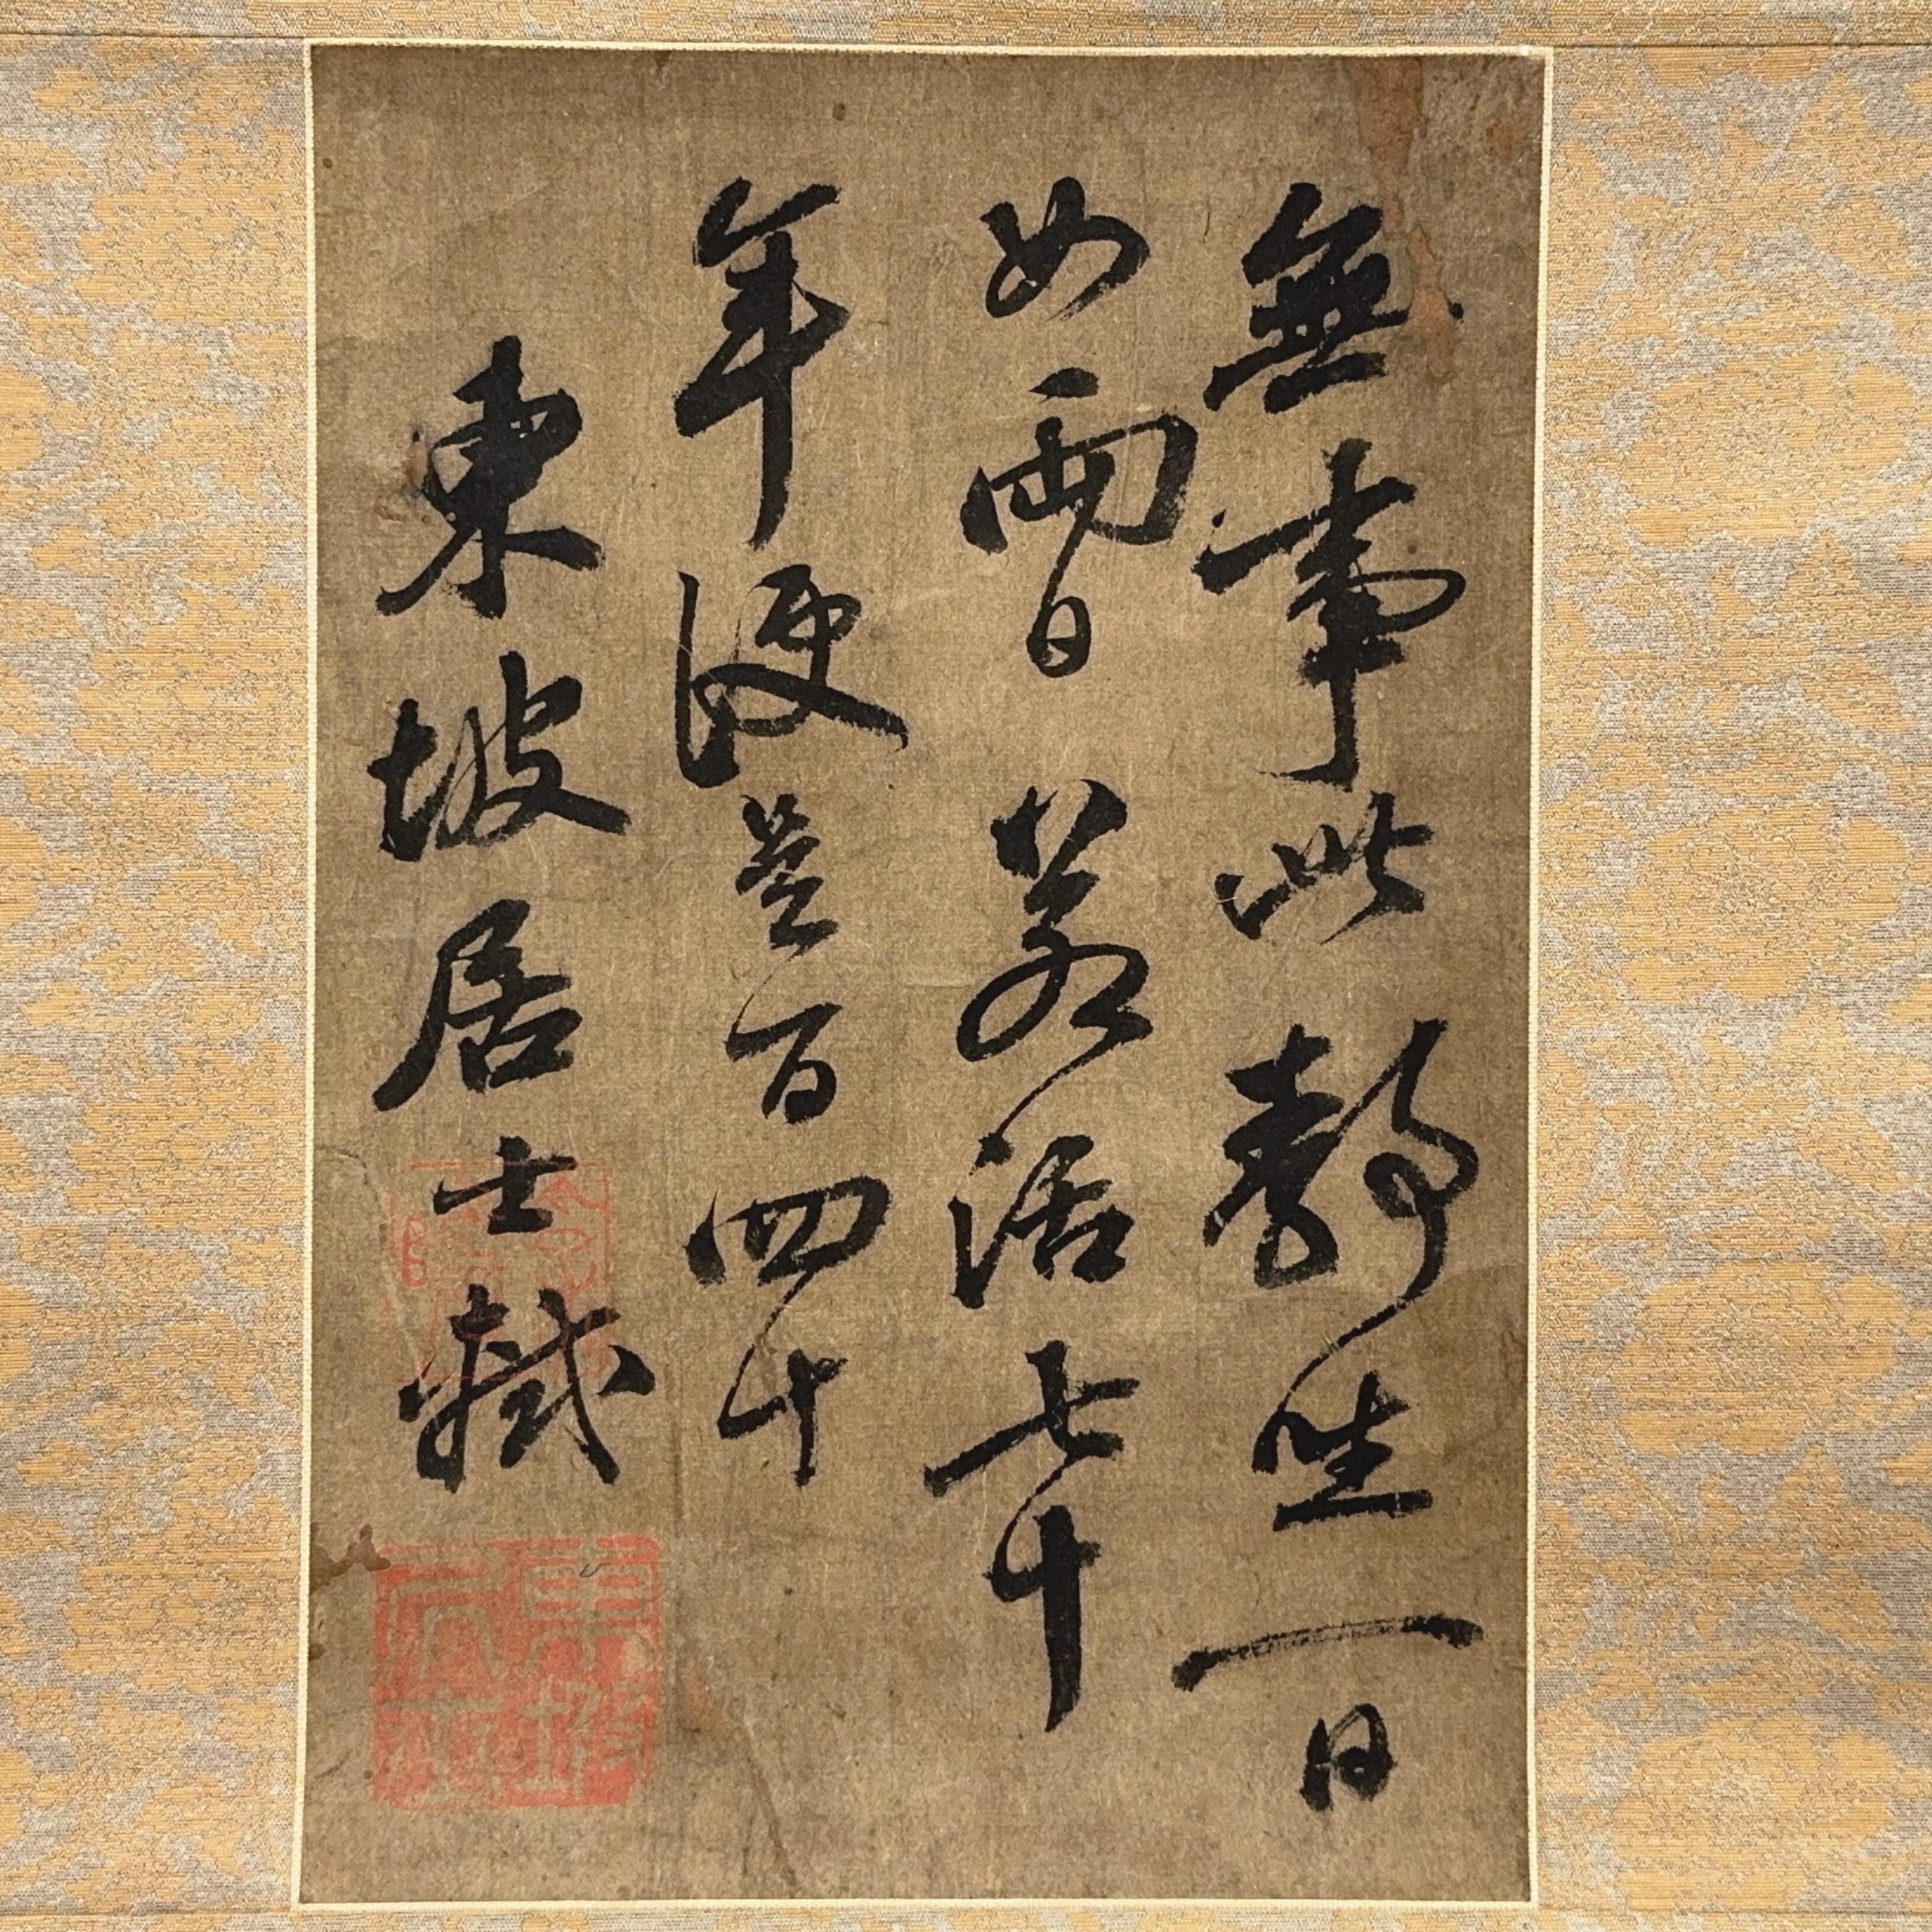 無事此靜坐一日
如兩日若活七十
年便是百四十
東坡居士軾